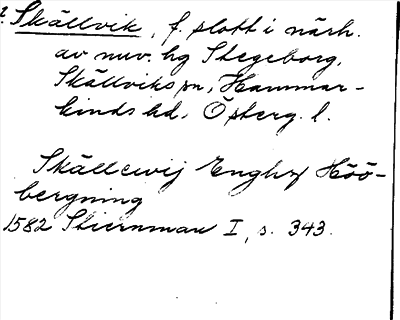 Skällvik, f. slott i närh.
av nuv. hg Stegeborg,
Skällviks sn, Hammar-
kinds hd, Österg. l.
Skällewij Enghz Höö-
bergning
1582 Stiernman I, s. 343.